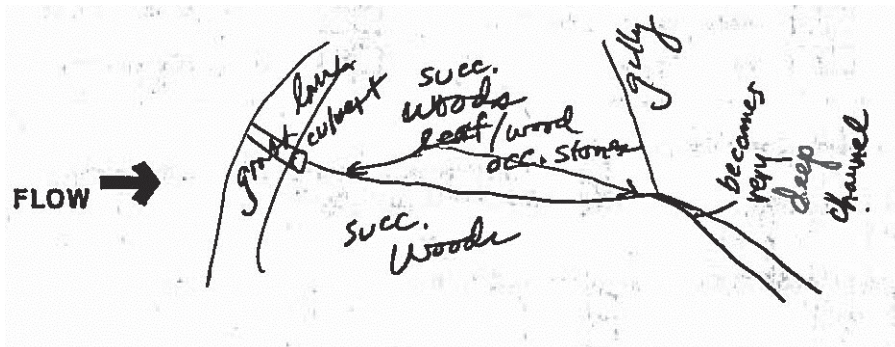 FLOW
culvert
succ.
woods
leaf/wood
occ. stones
succ.
Woods
gully
becomes
very
deep
channel